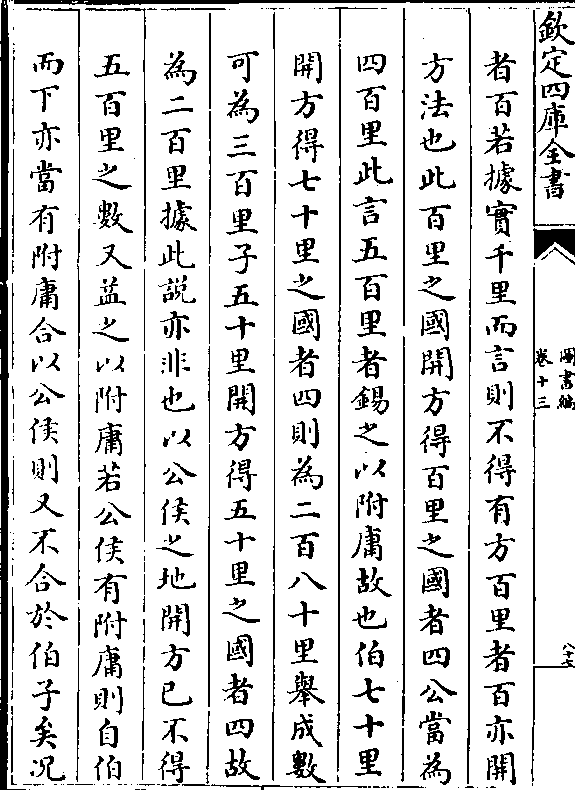 欽定四庫全書
圖書編
卷十三
八十七
者百若據實千里而言則不得有方百里者百亦開
方法也此百里之國開方得百里之國者四公當為
四百里此言五百里者錫之以附庸故也伯七十里
開方得七十里之國者四則為二百八十里舉成數
可為三百里子五十里開方得五十里之國者四故
為二百里據此説亦非也以公侯之地開方已不得
五百里之數又益之以附庸若公侯有附庸則自伯
而下亦當有附庸合以公侯則又不合於伯子矣况